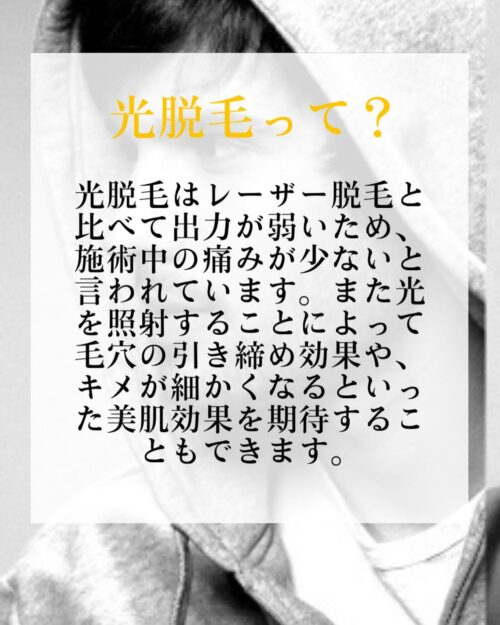 光脱毛って？
光脱毛はレーザー脱毛と
比べて出力が弱いため、
施術中の痛みが少ないと
言われています。また光
を照射することによって
毛穴の引き締め効果や、
キメが細かくなるといっ
た美肌効果を期待するこ
ともできます。